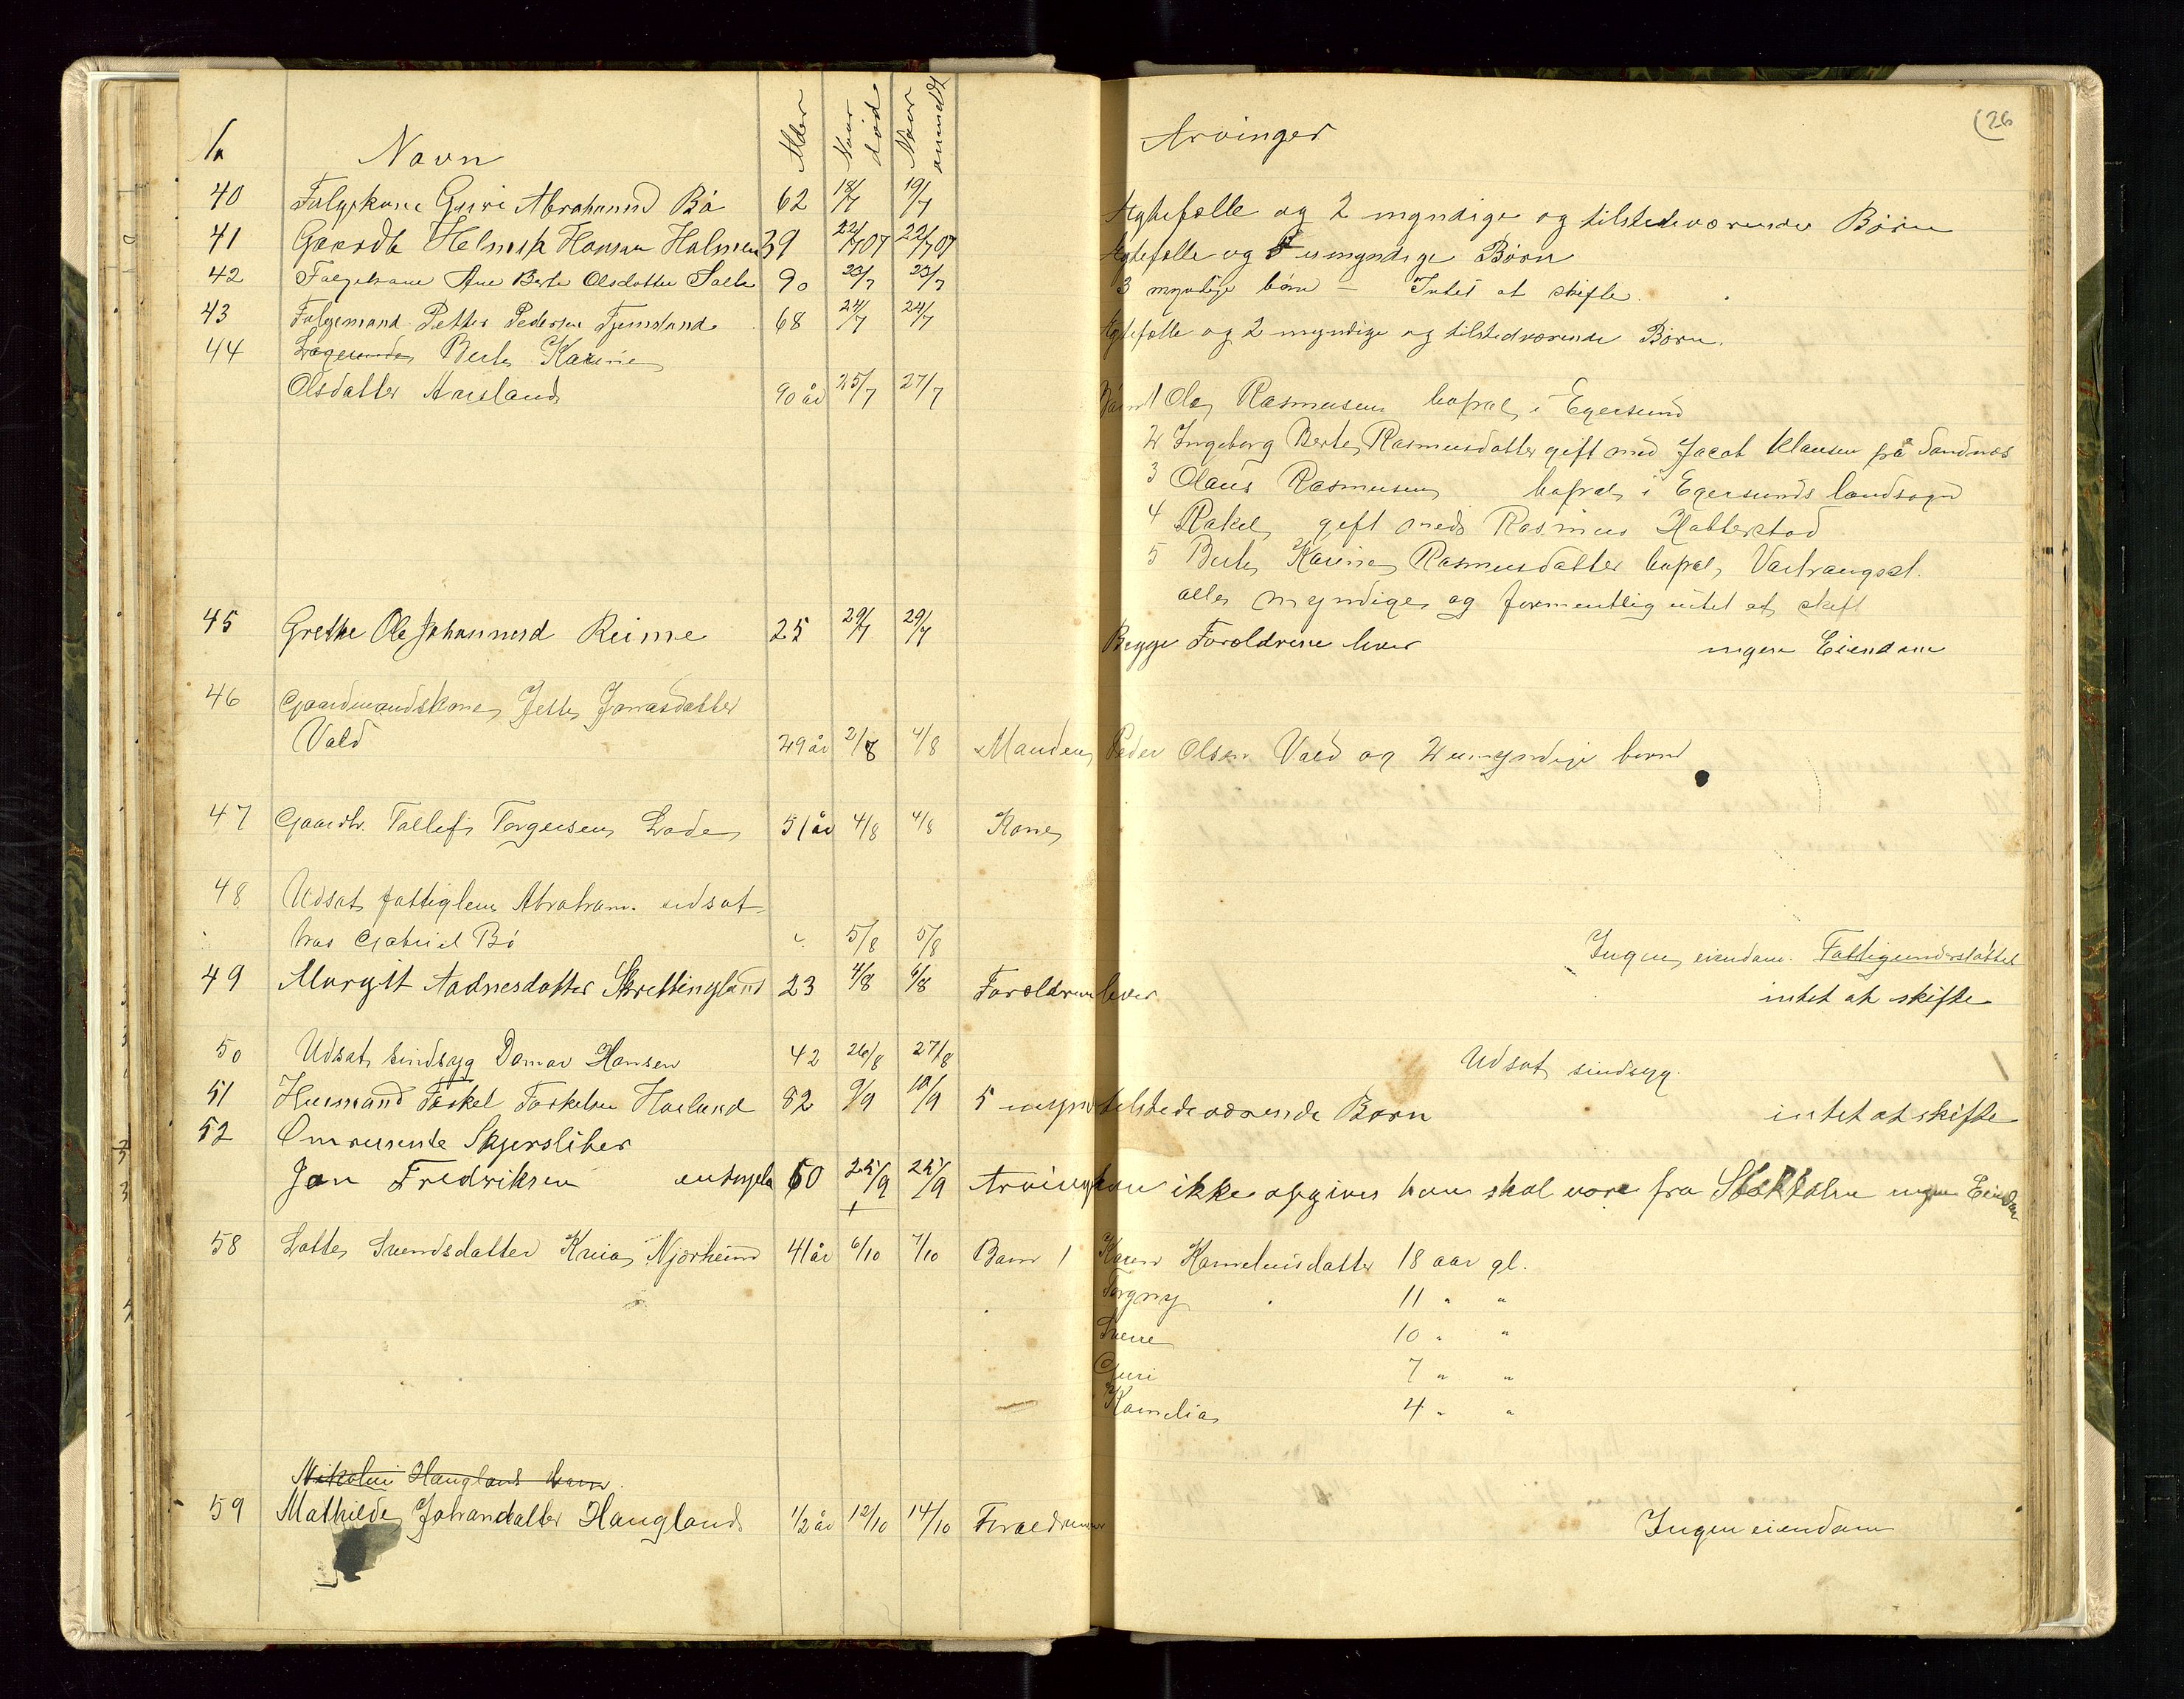 (26
No Navn Alder Naar død Naar anmeldt Arvinger
40 Folgekone Guri Abrahamsd Bø 62 18/7 19/7 Ægtefælle og 2 myndige og tilstedeværende Børn
41 Gaardb Helmik Hansen Holmen 39 22/7 07 22/7 07 Ægtefælle og umyndige Børn
42 Folgekone Ane Berte Olsdatter Salte 90 23/7 23/7 3 myndige børn – Intet at skifte.
43 Folgemand Petter Pedersen 68 24/7 24/7 Ægtefælle og 2 myndige og tilstedværende Børn.
44 Berte Karine
Olsdatter Aarsland 90 år 25/7 27/7 Børn 1 Ole Rasmussen bopæl i Egersund
2 Ingeborg Berte Rasmusdatter gift med Jacob Klausen på Sandnæs
3 Olaus Rasmussen bopæl i Egersunds landsogn
4 Rakel gift med Rasmus Hatterstad
5 Berte Karine Rasmusdatter bopæl,
alle myndige og formentlig intet at skift
45 Grethe Ole Johannesd Reime 25 29/7 29/7 Begge Foroldrene lever ingen Eiendom
46 Gaardmandskone Jette Jonasdatter
Vald 29 år 2/8 4/8 Manden Peder Olsen Vald og 2 umyndige børn
47 Gaardb. Tollef Torgersen Lode 51 år 4/8 4/8 Kone
48 Udsat fattiglem Abraham udsat
hos Gabriel Bø " 5/8 5/8 Ingen eiendom. Fattigunderstøttet
49 Margit Aadnesdatter Skretingland 23 4/8 6/8 Foroldrene lever intet at skifte
50 Udsat sindsyg Domar Hansen 42 26/8 27/8 Udsat sindsyg.
51 Husmand Torkel Torkelsen Hørlund 82 9/9 10/9 5 tilstedeværende Børn intet at skifte
52 Omreisende Skjersliber
Jon Fredriksen 60 25/9 25/9 Arvinger kan ikke opgives han skal være fra Stokholm ingen Eiendom
58 Lotte Svendsdatter Njærheim 41 år 6/10 7/10 Barn 1 Karen Kornelius datter 18 aar gl.
Torgny 11 " "
Sverre 10 " "
Guri 7 " "
Kornelia 4 " "
Nikolai Hauglans barn.
59 Mathilde Johandatter Haugland 1/2 år 12/10 14/10 Foroldrene Ingen eiendom